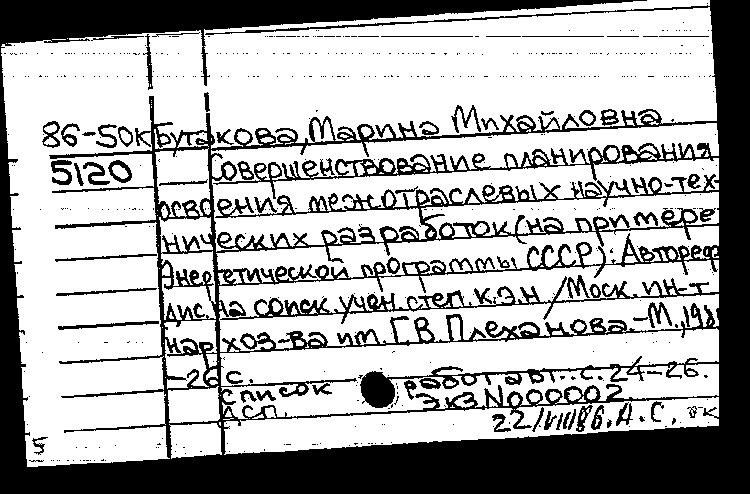 86-50к Бутакова, Марина Михайловна.
5120 Совершенствование планирования
освоения межотраслевых научно-тех-
нических разработок (на примере
Энергетической программы СССР): Автореф
дис. на соиск. учен. степ. к.э.н. / Моск. ин-т
нар хоз-ва им. Г.В. Плеханова. -М.,
-26 с.
список работ авт.: с. 24-26.
ДСП. Экз. N000002
22/VIII86. А.С.
5